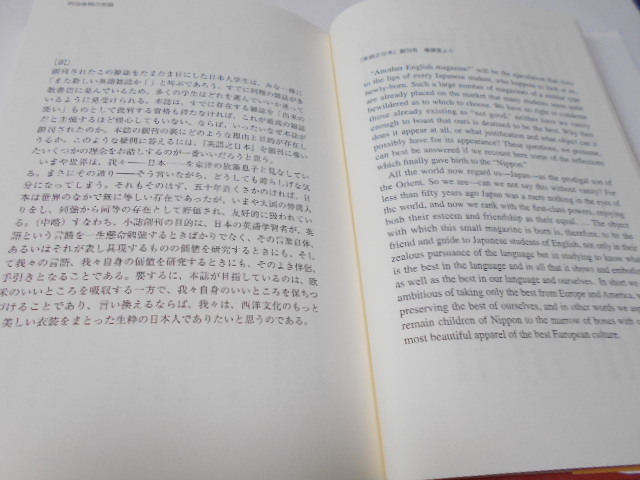 明治後期の英語
［訳］
創刊されたこの雑誌をたまたま目にした日本人学生は、みな一様に
「また新しい英語雑誌か！」と叫ぶであろう。すでに同種の雑誌が多
数書店に並んでいるため、多くの学生はどれを選んでいいか迷って
いるように見受けられる。本誌は、すでに存在する雑誌を「出来の
悪い」ものとして批判する資格も持たなければ、これが最高の雑誌
だと主張するほど慢心してもいない。ならば、いったいなぜ本誌が
創刊されたのか。本誌の創刊の裏にどのような理由と目的が存在し
うるか。このような疑問に答えるには、『英語之日本』を創刊に導い
たいくつかの理念をお話しするのが一番いいだろうと思う。
いまや世界は、我々――日本――を東洋の放蕩息子と見なしてい
る。まさにその誇り――そう言いながら、どうしても誇らしげな気
分になってしまう。それもそのはず、五十年近くさかのぼれば、日
本は世界のなかで無に等しい存在であったが、いまや大国の仲間入
りをし、列強から同等の存在として評価され、友好的に扱われてい
る。（中略）すなわち、小誌創刊の目的は、日本の英語学習者が、英
語という言語を一生懸命勉強するときばかりでなく、その言葉自体、
あるいはそれが表し具現するものの価値を研究するときにも、そし
て我々の言語、我々自身の価値を研究するときにも、そのよき伴侶、
手引きとなることである。要するに、本誌が目指しているのは、欧
米のいいところを吸収する一方で、我々自身のいいところを保ちつ
づけることであり、言い換えるならば、我々は、西洋文化のもっと
美しい衣装をまとった生粋の日本人でありたいと思うのである。
『英語之日本』創刊号 巻頭言より
"Another English magazine!" will be the ejaculation that
to the lips of every Japanese student, who happens to look at
newly-born. Such a large number of magazines of a similar type
are already placed on the market that many students seem
bewildered as to which to choose. We have no right to condemn
those already existing as "not good," neither are we vain
enough to boast that ours is destined to be the best. Why then
does it appear at all, or what justification and what object can
possibly have for its appearance? These questions, we presume,
can best be answered if we recount here some of the reflections
which finally gave birth to the "Nippon."
All the world now regard us—Japan—as the prodigal son of
the Orient. So we are—can we not say this without vanity? For
less than fifty years ago Japan was a mere nothing in the eyes of
the world, and now we rank with the first-class powers, enjoying
both their esteem and friendship as their equal. ... The object
with which this small magazine is born, is, therefore, to be the
friend and guide to Japanese students of English, not only in their
zealous pursuance of the language but in studying to know what
is the best in the language and in all that it shows and embodies
as well as the best in our language and in ourselves. In short, we
ambitious of taking only the best from Europe and America,
preserving the best of ourselves, and in other words we aspire
remain children of Nippon to the marrow of bones with
most beautiful apparel of the best European culture.